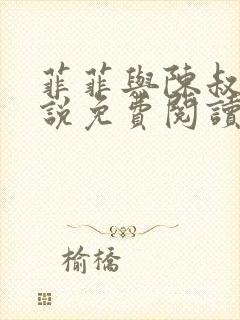 菲菲與陳叔
說免費閱讀
榆橋